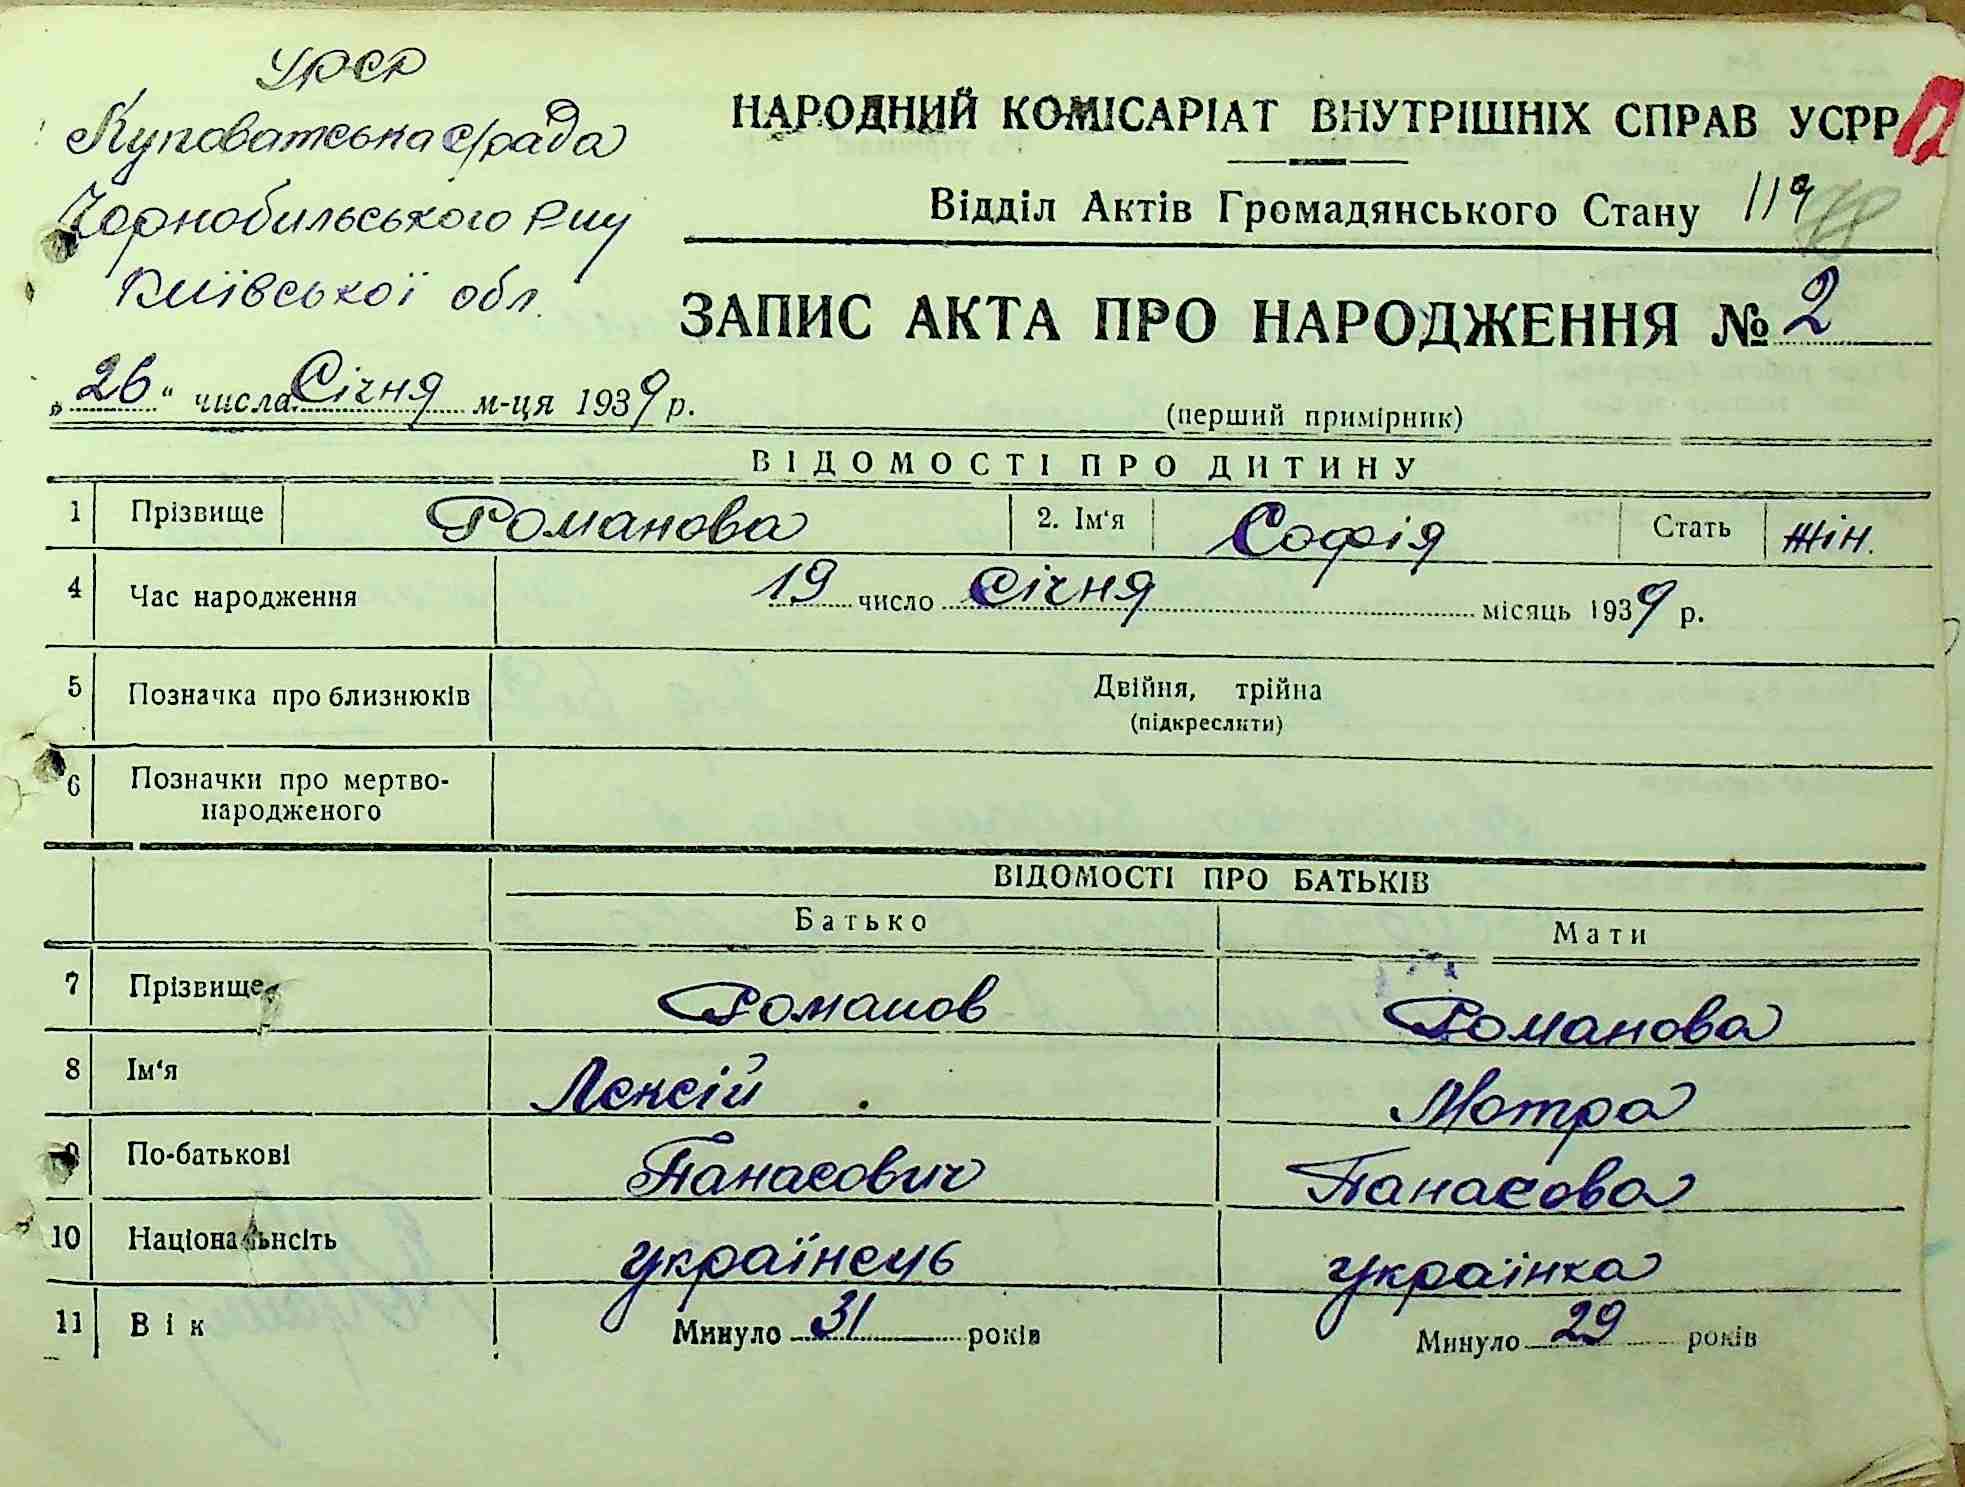 УРСР
Куповатська с/рада
Чорнобильського р-ну
Київської обл.
НАРОДНИЙ КОМІСАРІАТ ВНУТРІШНІХ СПРАВ УСРР
Відділ Актів Громадянського Стану 119
ЗАПИС АКТА ПРО НАРОДЖЕННЯ № 2
„26“ числа Січня м-ця 1939 р.
(перший примірник)
ВІДОМОСТІ ПРО ДИТИНУ
1 Прізвище Романова 2. Ім'я Софія Стать жін.
4 Час народження 19 число Січня місяць 1939 р.
5 Позначка про близнюків Двійня, трійна
(підкреслити)
6 Позначки про мертво-
народженого
ВІДОМОСТІ ПРО БАТЬКІВ
Батько Мати
7 Прізвище Романов Романова
8 Ім'я Лєксій Мотра
9 По-батькові Панасович Панасова
10 Національнсіть українець українка
11 Вік Минуло 31 років Минуло 29 років